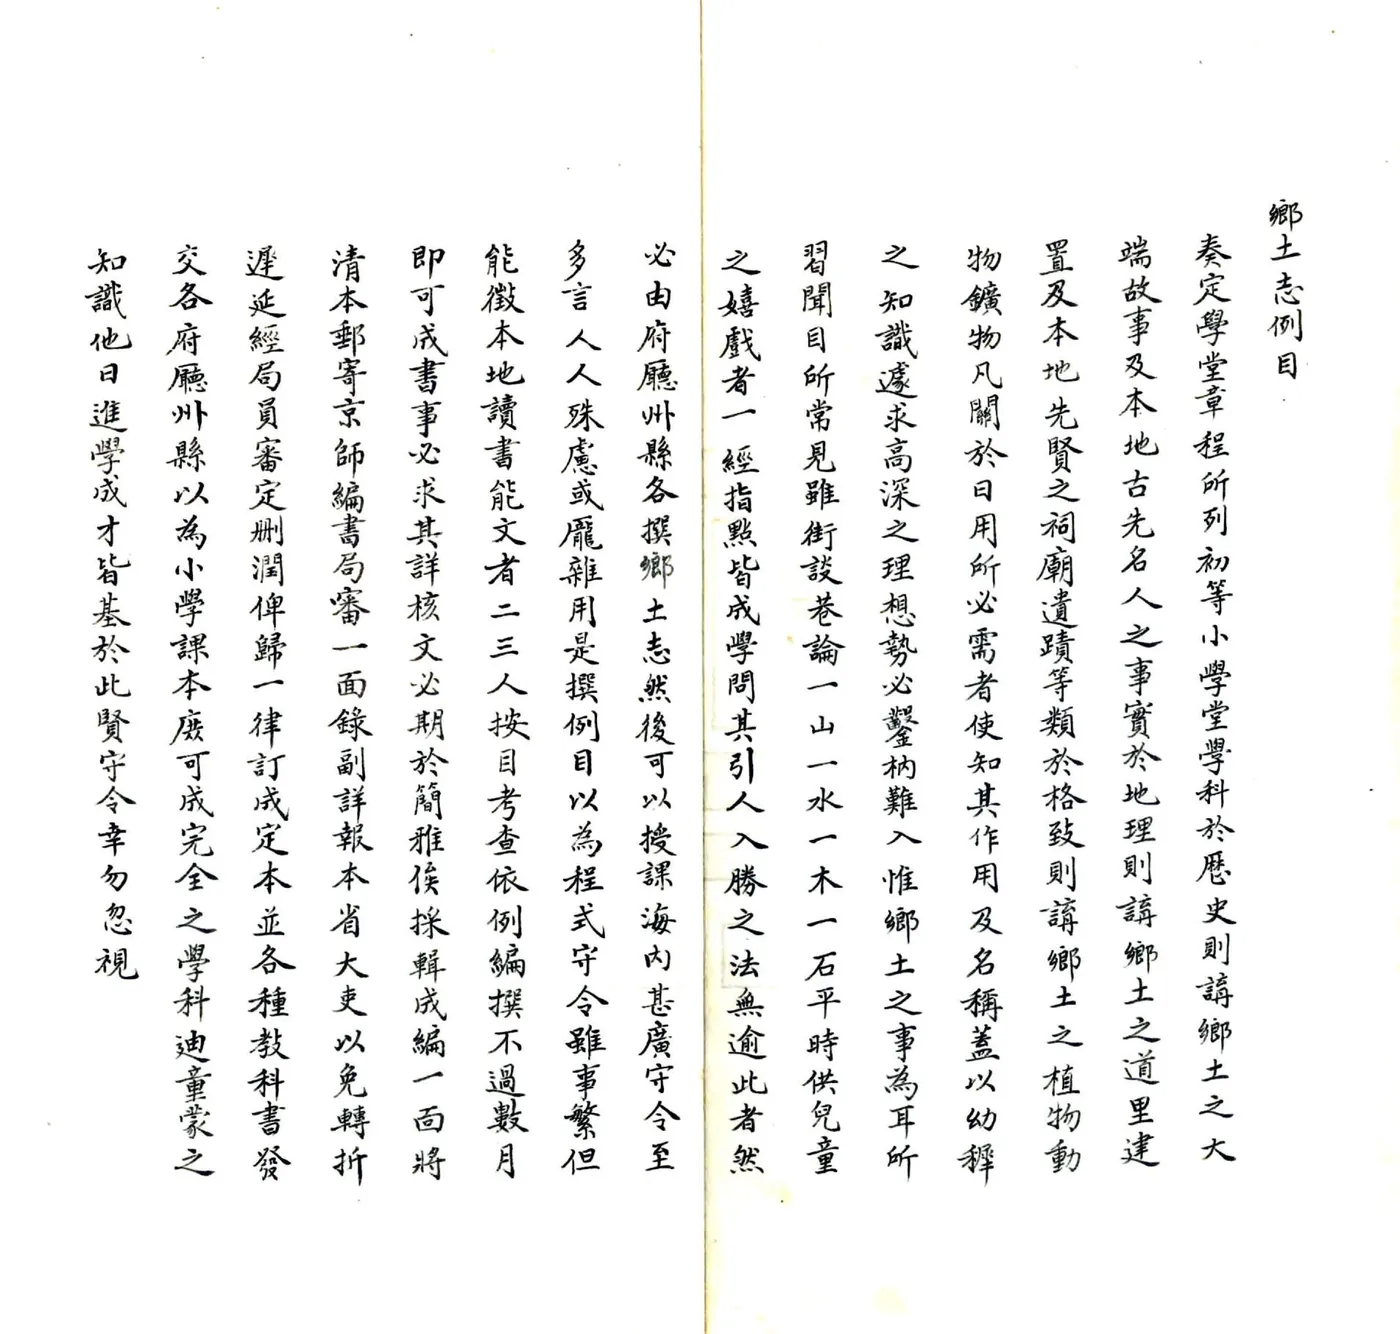 鄉土志例目
奏定學堂章程所列初等小學堂學科於歷史則講鄉土之大
端故事及本地古先名人之事實於地理則講鄉土之道里建
置及本地先賢之祠廟遺蹟等類於格致則講鄉土之植物動
物鑛物凡關於日用所必需者使知其作用及名稱蓋以幼穉
之知識遽求高深之理想勢必鑿枘難入惟鄉土之事為耳所
習聞目所常見雖街談巷論一山一水一木一石平時供兒童
之嬉戲者一經指點皆成學問其引人入勝之法無逾此者然
必由府廳州縣各撰鄉土志然後可以授課海內甚廣守令至
多言人人殊慮或龎雜用是撰例目以為程式守令雖事繁但
能徵本地讀書能文者二三人按目考查依例編撰不過數月
即可成書事必求其詳核文必期於簡雅俟採輯成編一面將
清本郵寄京師編書局審一面錄副詳報本省大吏以免轉折
遲延經局員審定刪潤俾歸一律訂成定本並各種教科書發
交各府廳州縣以為小學課本庶可成完全之學科迪童蒙之
知識他日進學成才皆基於此賢守令幸勿忽視